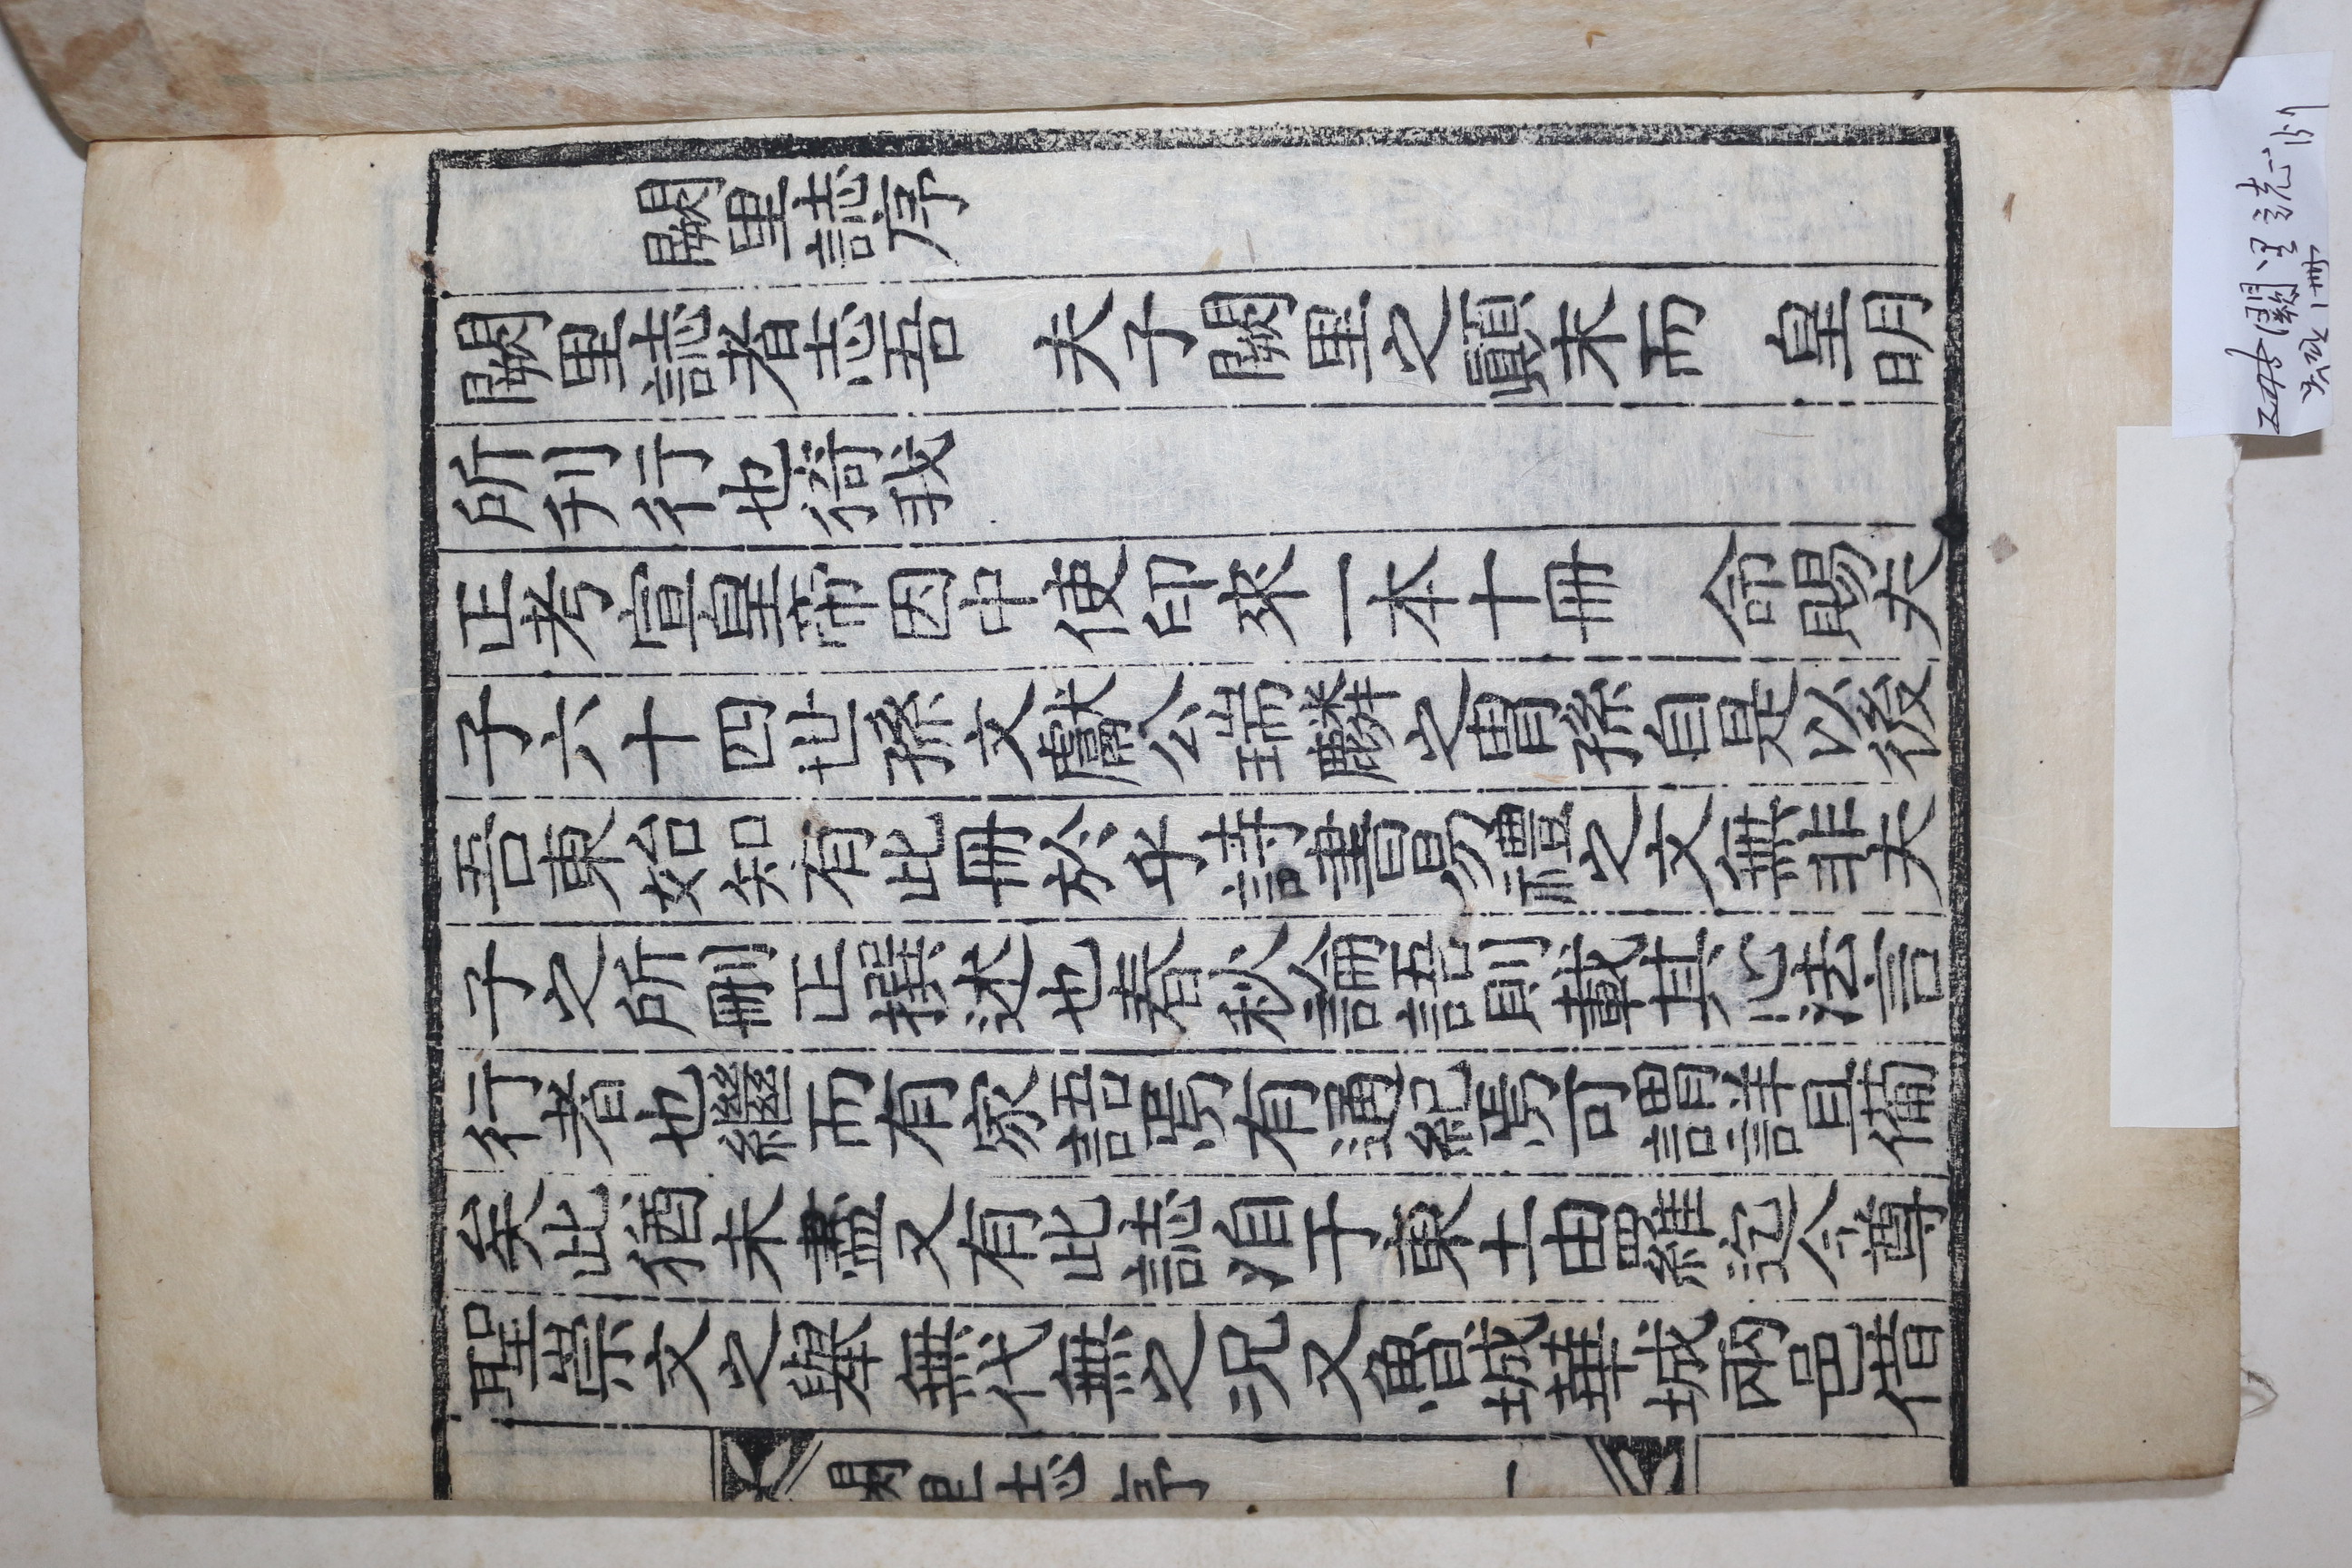 闕里誌序
闕里誌者志吾　夫子闕里之顚末而　皇明
所刊行也猗我
正考宣皇帝因中使印來一本十冊　命賜夫
子六十四世孫文獻公瑞麟之胄孫自是以後
吾東始知有此冊於乎詩書易禮之文無非夫
子之所刪正撰述也春秋論語則載其心法言
行者也繼而有家語焉有通紀焉可謂詳且備
矣此猶未盡又有此誌洎于東土由羅迄今尊
聖崇文之擧無代無之况又魯城華城兩邑借
闕里志序
一
闕里誌
1冊